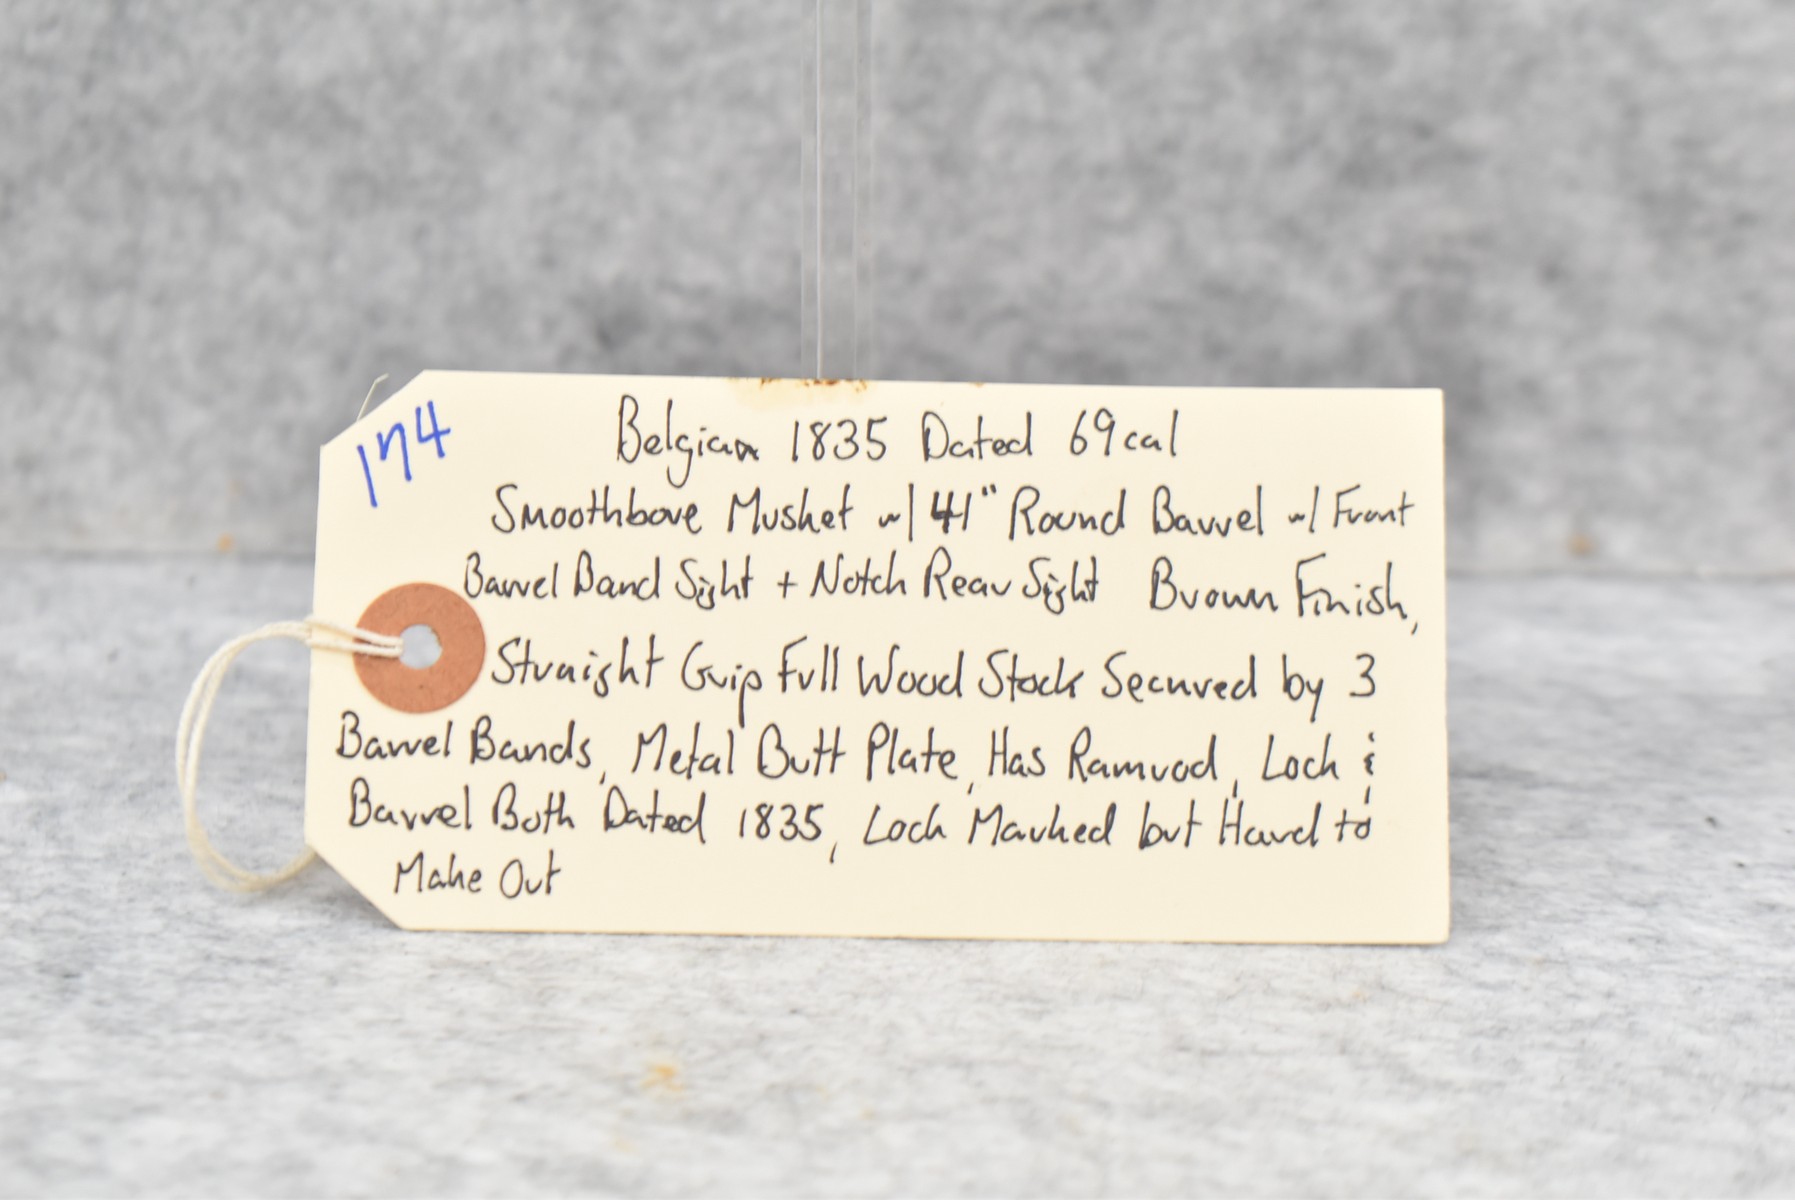 174
Belgian 1835 Dated 69cal
Smoothbore Musket w/ 41" Round Barrel w/ Front
Barrel Band Sight + Notch Rear Sight Brown Finish,
Straight Grip Full Wood Stock Secured by 3
Barrel Bands, Metal Butt Plate, Has Ramrod, Lock &
Barrel Both Dated 1835, Lock Marked but Hard to
Make Out